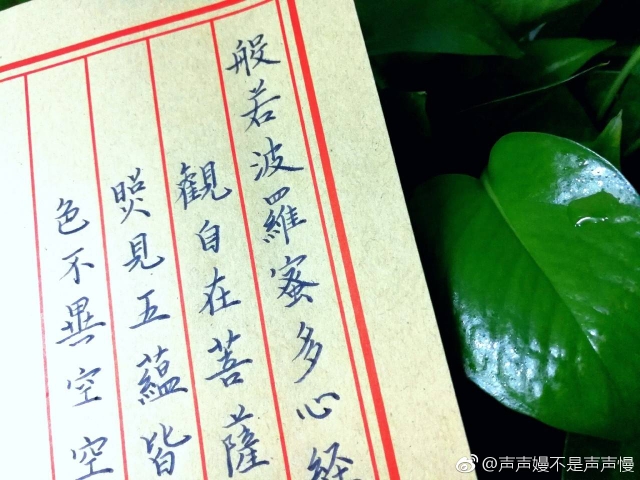 般若波羅蜜多心経
觀自在菩薩
照見五蘊皆
色不異空空
@声声嫚不是声声慢